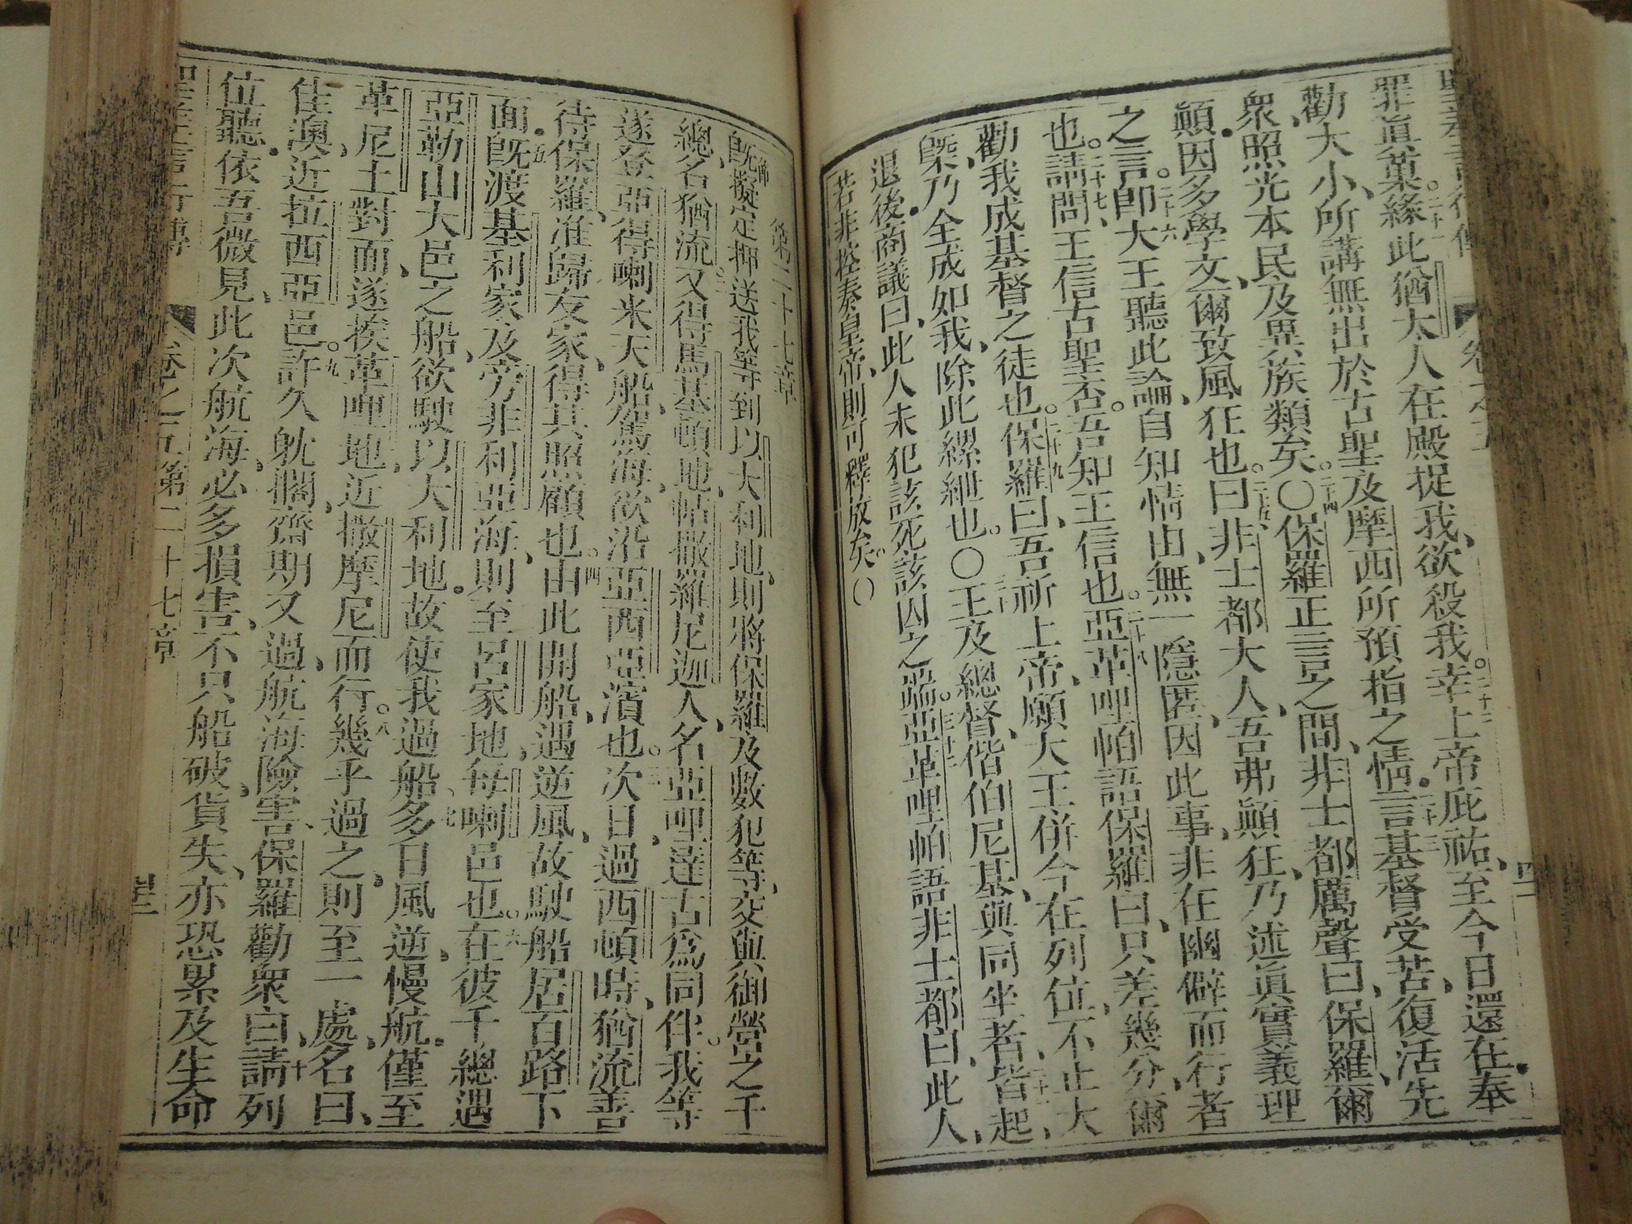 罪眞菓緣此猶太人在殿捉我、欲殺我。二十二幸上帝庇祐、至今日還在奉
勸大小、所講無出於古聖及摩西所預指之情。二十三言基督受苦、復活先
衆、照光本民及異族類矣。〇二十四保羅正言之間、非士都厲聲曰、保羅爾
顚、因多學文、爾致風狂也。二十五曰、非士都大人、吾弗顚狂、乃述眞實義理
之言。二十六卽大王聽此論、自知情由、無一隱匿、因此事、非在幽僻而行者
也。二十七請問、王信古聖否。吾知王信也。二十八亞革哩帕語保羅曰、只差幾分、爾
勸我成基督之徒也。二十九保羅曰、吾祈上帝、願大王併今在列位、不止大
槩、乃全成如我、除此縲絏也。〇三十王及總督、偕伯尼基、與同坐者、皆起、
退後、商議曰、此人未犯該死該囚之端。亞革哩帕語非士都曰、此人、
若非控奏皇帝、則可釋放矣。〇
第二十七章
旣擬定押送我等到以大利地、則將保羅及數犯等、交與御營之千
總、名猶流。二又得馬基頓地帖撒羅尼迦人、名亞哩達古爲同伴。我等
遂登亞得喇米天船、駕海、欲沿亞西亞濱也。三次日、過西頓時、猶流善
待保羅、准歸友家、得其照顧也。四由此開船、遇逆風、故駛船居百路下
面。五旣渡基利家、及旁非利亞海、則至呂家地、每喇邑也。六在彼千總遇
亞勒山大邑之船、欲駛以大利地、故使我過船。七多日風逆、慢航、僅至
革尼土對面、遂挨革哩地、近撒摩尼而行。八幾乎過之、則至一處、名曰、
佳澳、近拉西亞邑。九許久躭擱、齋期又過、航海險害、保羅勸衆曰、十請列
位聽、依吾微見、此次航海、必多損害、不只船破貨失、亦恐累及生命
卷之五第二十七章